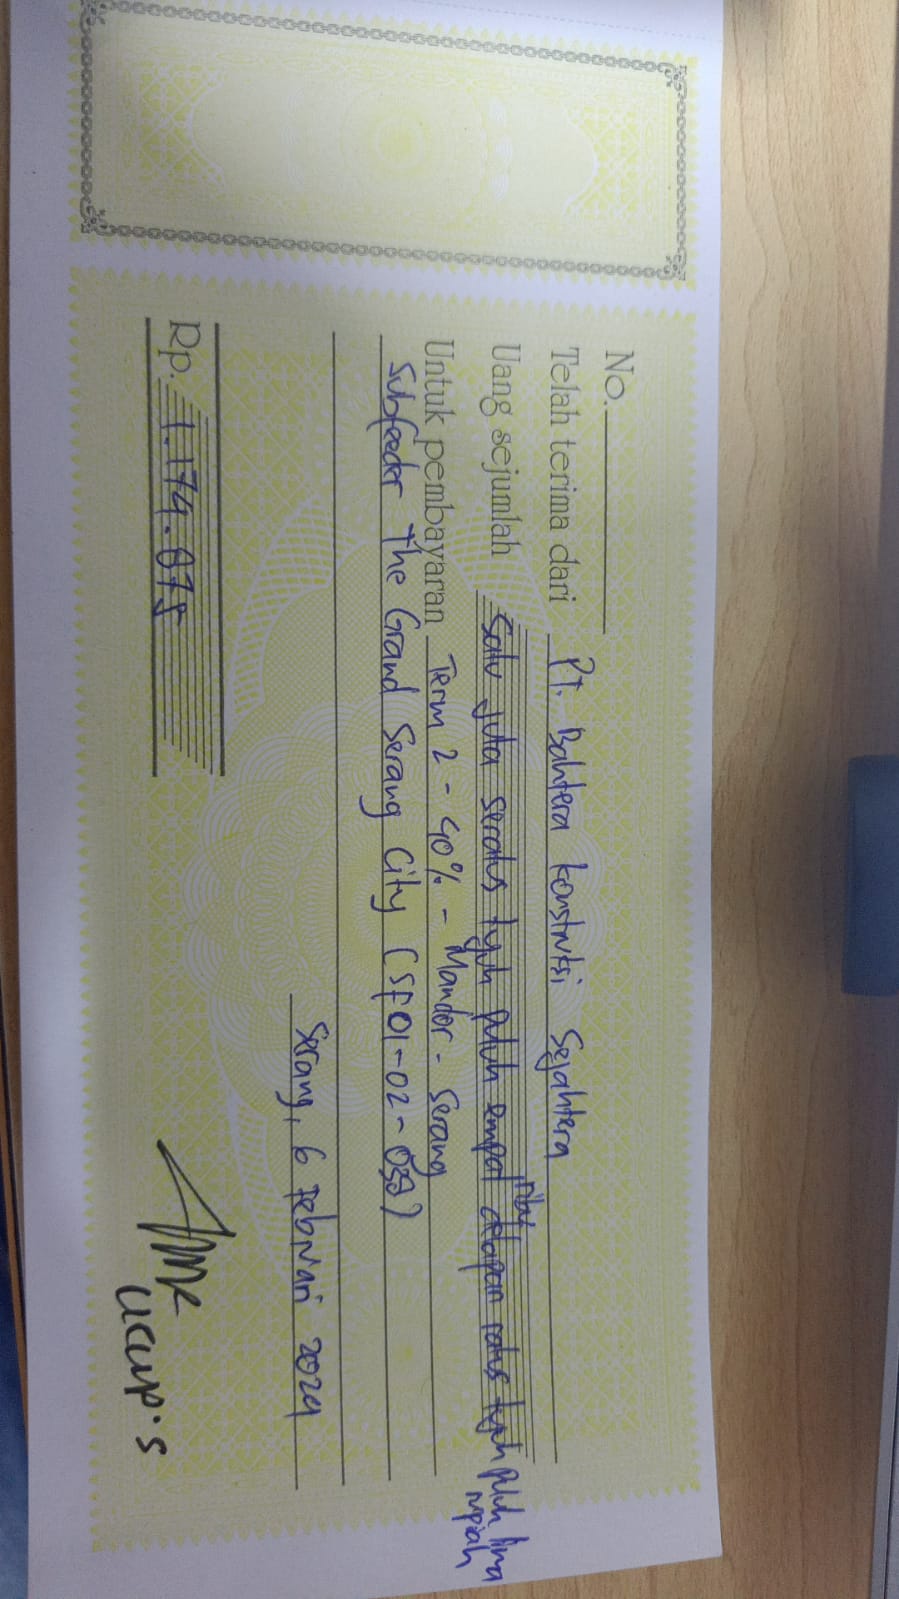 No.
Telah terima dari PT. Bahtera konstruksi Sejahtera
Uang sejumlah Satu juta seratus tujuh puluh empat ribu delapan ratus tujuh puluh lima rupiah
Untuk pembayaran Term 2 - 40% - Mandor - Serang
Subfeeder The Grand Serang City (SF01-02-)
Serang, 6 Februari 2024
Rp. 1.174.875
Ucup.S